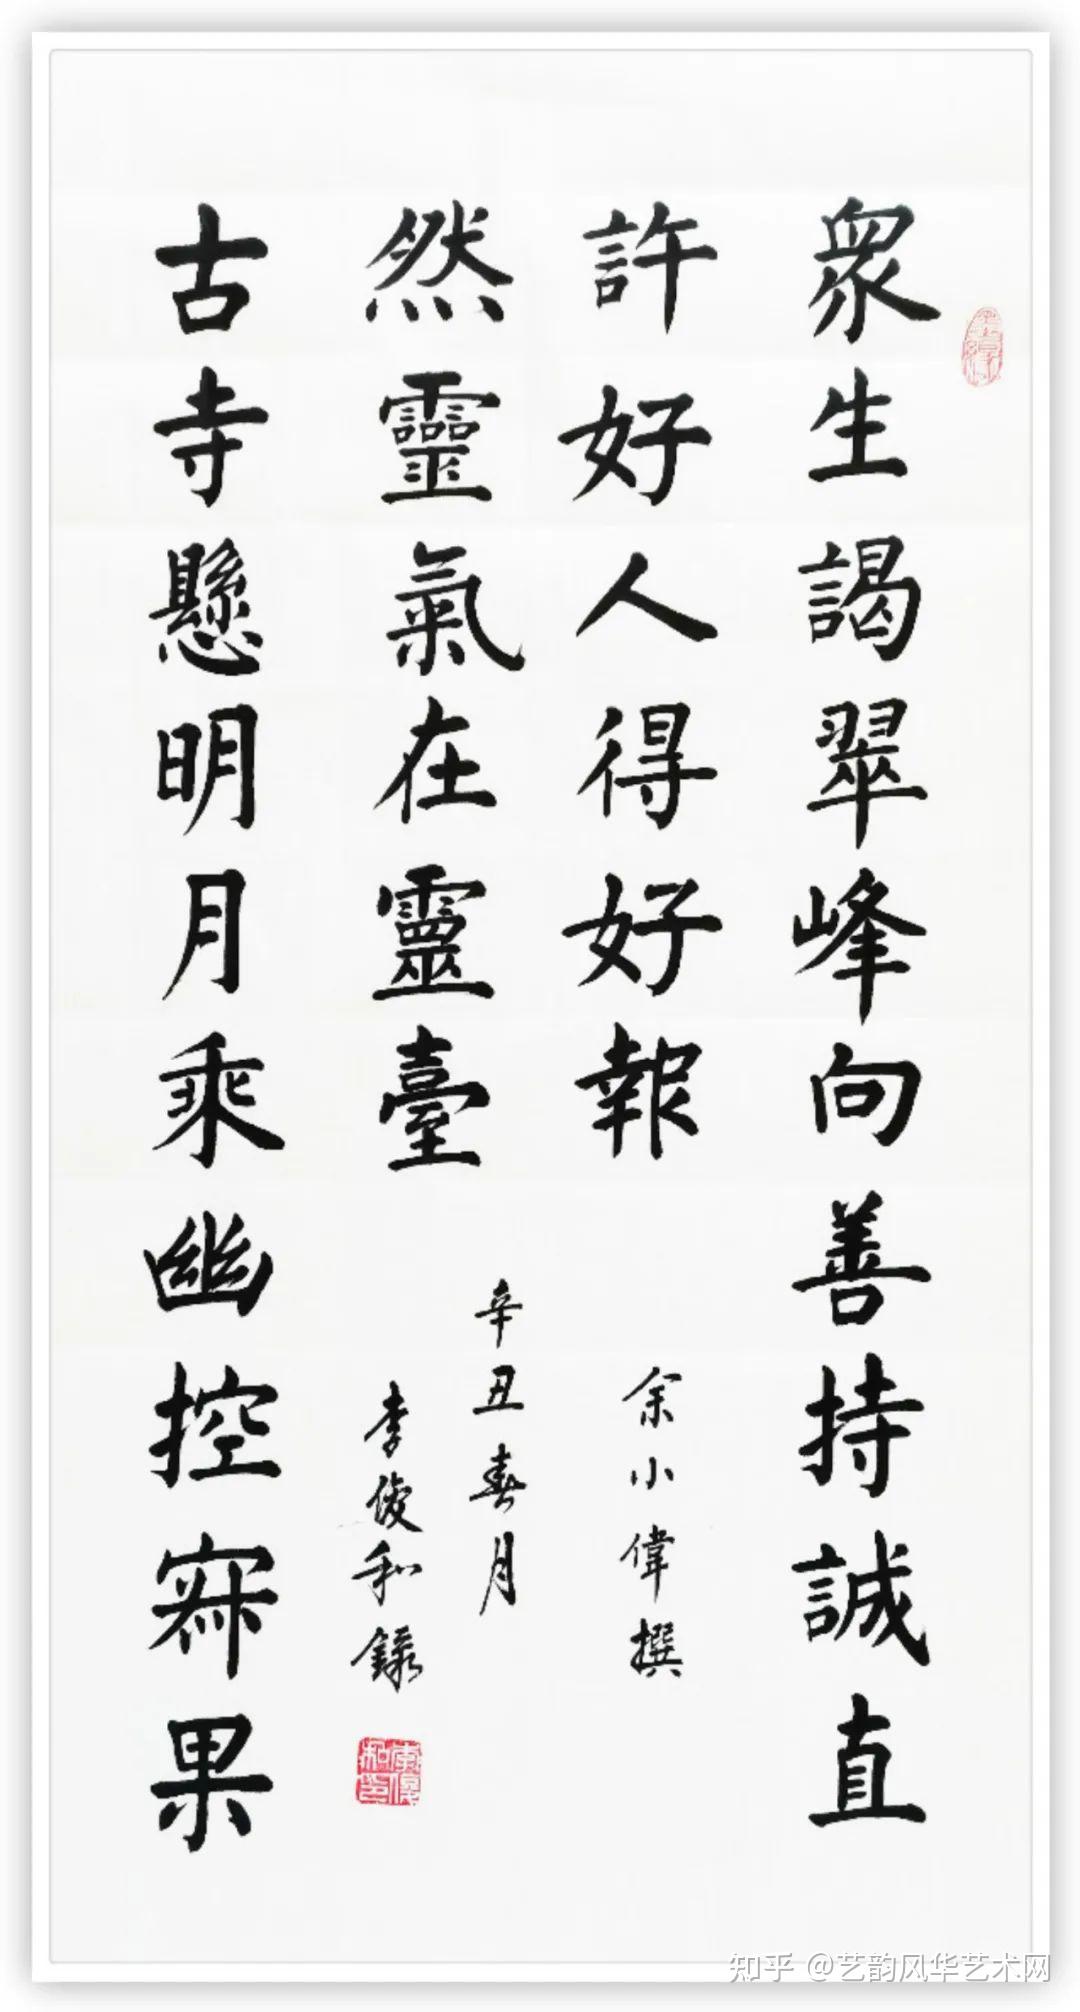 衆生謁翠峰向善持誠直
許好人得好報
余小偉撰
古寺懸明月乘幽控寂果
然靈氣在靈臺
辛丑春月
李俊和錄
李俊和印
知乎 @艺韵风华艺术网